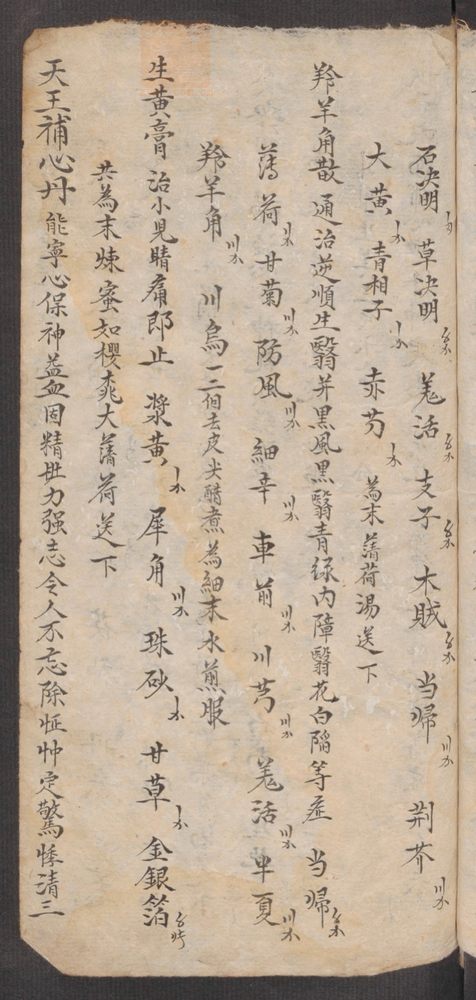 石决明 草决明 羗活 支子 木賊 当帰 荆芥
大黄 青相子 赤芍 為末薄荷湯送下
羚羊角散 通治逆順生翳并黒風黒翳青緑内障翳花白陥等症 当帰
薄荷 甘菊 防風 細辛 車前 川芎 羗活 半夏
羚羊角 川烏一二個去皮尖醋煮為細末水煎服
生黄膏 治小児睛痛即止 漿黄 犀角 珠砂 甘草 金銀箔
共為末煉蜜如櫻桃大薄荷送下
天王補心丹 能寧心保神益血固精壯力强志令人不忘除怔忡定驚悸清三